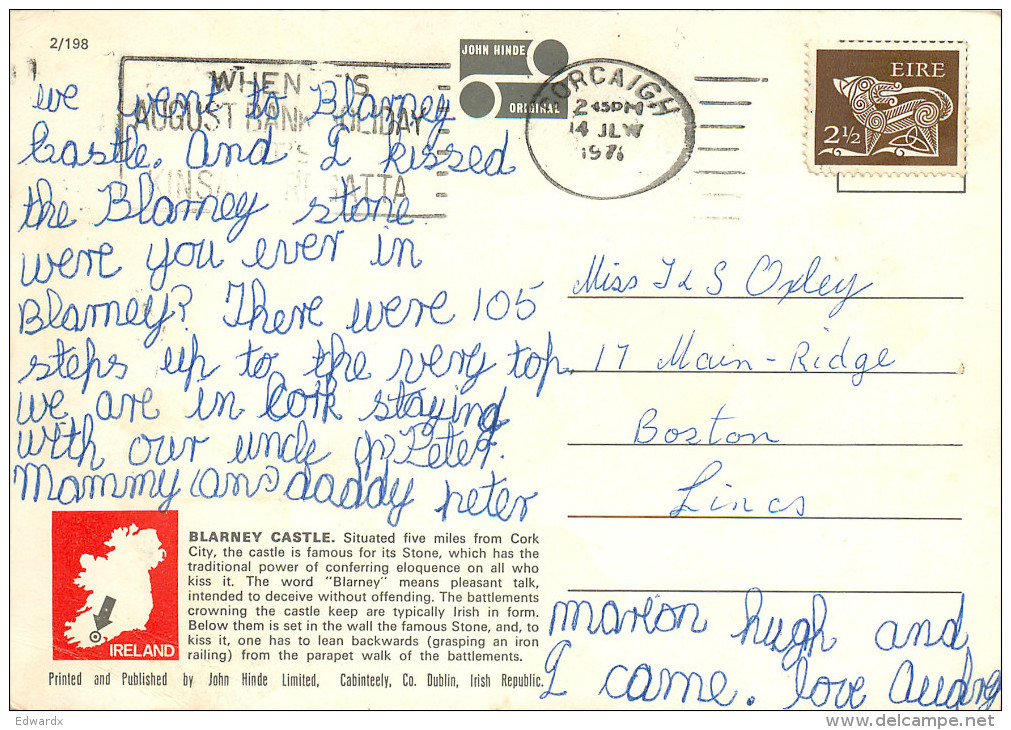 2/198
JOHN HINDE
ORIGINAL
WHEN IS
AUGUST BANK HOLIDAY
KINSA GATTA
CORCAIGH
2 45PM
14 JLW
EIRE
2½
we went to Blarney
Castle. And I kissed
the Blarney stone
were you ever in
Blarney? There were 105
steps up to the very top.
we are in Cork staying
with our uncle Peter.
Mammy and daddy peter
marion hugh and
I came. love Audry
Miss J & S Oxley
17 Main-Ridge
Boston
Lincs
BLARNEY CASTLE. Situated five miles from Cork
City, the castle is famous for its Stone, which has the
traditional power of conferring eloquence on all who
kiss it. The word "Blarney" means pleasant talk,
intended to deceive without offending. The battlements
crowning the castle keep are typically Irish in form.
Below them is set in the wall the famous Stone, and, to
kiss it, one has to lean backwards (grasping an iron
railing) from the parapet walk of the battlements.
IRELAND
Printed and Published by John Hinde Limited, Cabinteely, Co. Dublin, Irish Republic.
Edwardx
delcampe.net